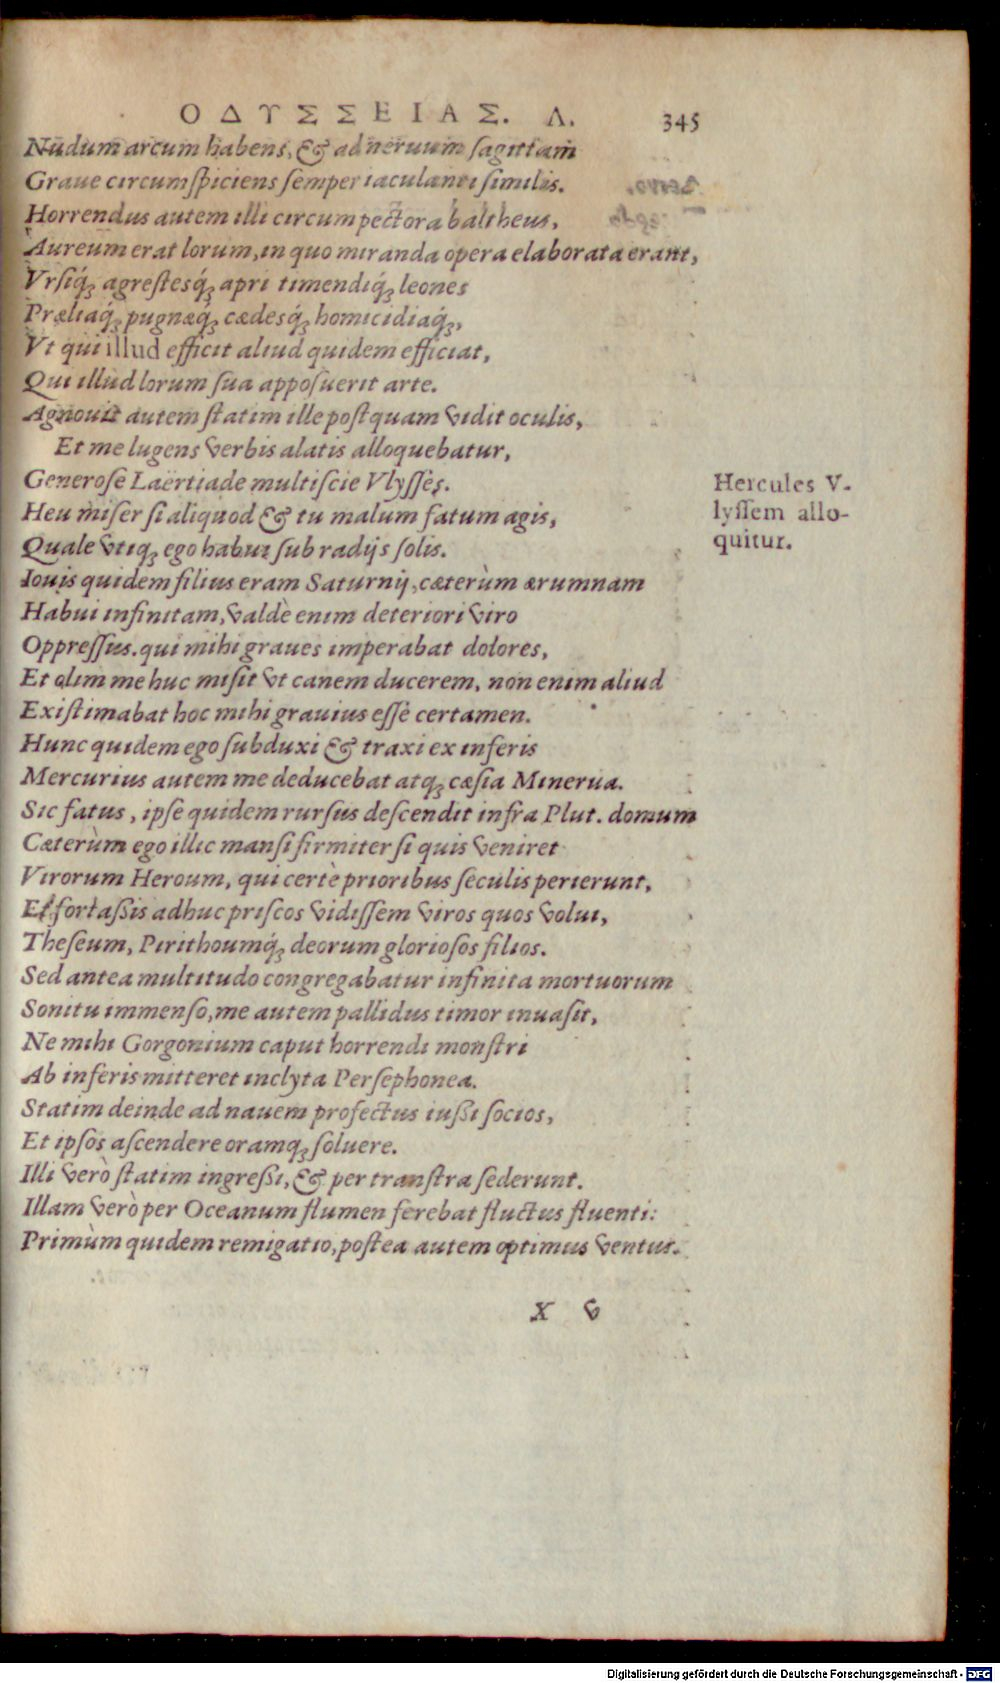 ΟΔΥΣΣΕΙΑΣ. Λ. 345
Nudum arcum habens, & ad neruum sagittam
Graue circumspiciens semper iaculanti similis.
Horrendus autem illi circum pectora baltheus,
Aureum erat lorum, in quo miranda opera elaborata erant,
Vrsiq́ꝫ agrestesq́ꝫ apri timendiq́ꝫ leones
Præliaq́ꝫ pugnæq́ꝫ cædesq́ꝫ homicidiaq́ꝫ,
Vt qui illud efficit aliud quidem efficiat,
Qui illud lorum sua apposuerit arte.
Agnouit autem statim ille postquam vidit oculis,
Et me lugens verbis alatis alloquebatur,
Generose Laërtiade multiscie Vlysses.
Heu miser si aliquod & tu malum fatum agis,
Quale vtiqꝫ ego habui sub radijs solis.
Iouis quidem filius eram Saturnij, cæterùm ærumnam
Habui infinitam, valdè enim deteriori viro
Oppressus. qui mihi graues imperabat dolores,
Et olim me huc misit vt canem ducerem, non enim aliud
Existimabat hoc mihi grauius esse certamen.
Hunc quidem ego subduxi & traxi ex inferis
Mercurius autem me deducebat atqꝫ cæsia Minerua.
Sic fatus, ipse quidem rursus descendit infra Plut. domum
Cæterùm ego illic mansi firmiter si quis veniret
Virorum Heroum, qui certè prioribus seculis perierunt,
Et fortassis adhuc priscos vidissem viros quos volui,
Theseum, Pirithoumq́ꝫ deorum gloriosos filios.
Sed antea multitudo congregabatur infinita mortuorum
Sonitu immenso, me autem pallidus timor inuasit,
Ne mihi Gorgonium caput horrendi monstri
Ab inferis mitteret inclyta Persephonea.
Statim deinde ad nauem profectus iussi socios,
Et ipsos ascendere oramqꝫ soluere.
Illi verò statim ingressi, & per transtra sederunt.
Illam verò per Oceanum flumen ferebat fluctus fluenti:
Primùm quidem remigatio, postea autem optimus ventus.
Hercules V-
lyssem allo-
quitur.
X v
Digitalisierung gefördert durch die Deutsche Forschungsgemeinschaft - DFG